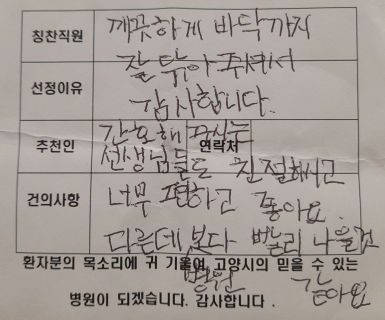 칭찬직원 깨끗하게 바닥까지
잘 닦아 주셔서
선정이유 감사합니다.
추천인 간호해 주시는 연락처
선생님들도 친절하시고
건의사항 너무 편하고 좋아요.
다른데 보다 빨리 나을것
환자분의 목소리에 귀 기울여, 고양시의 믿을 수 있는
병원 같아요
병원이 되겠습니다. 감사합니다.